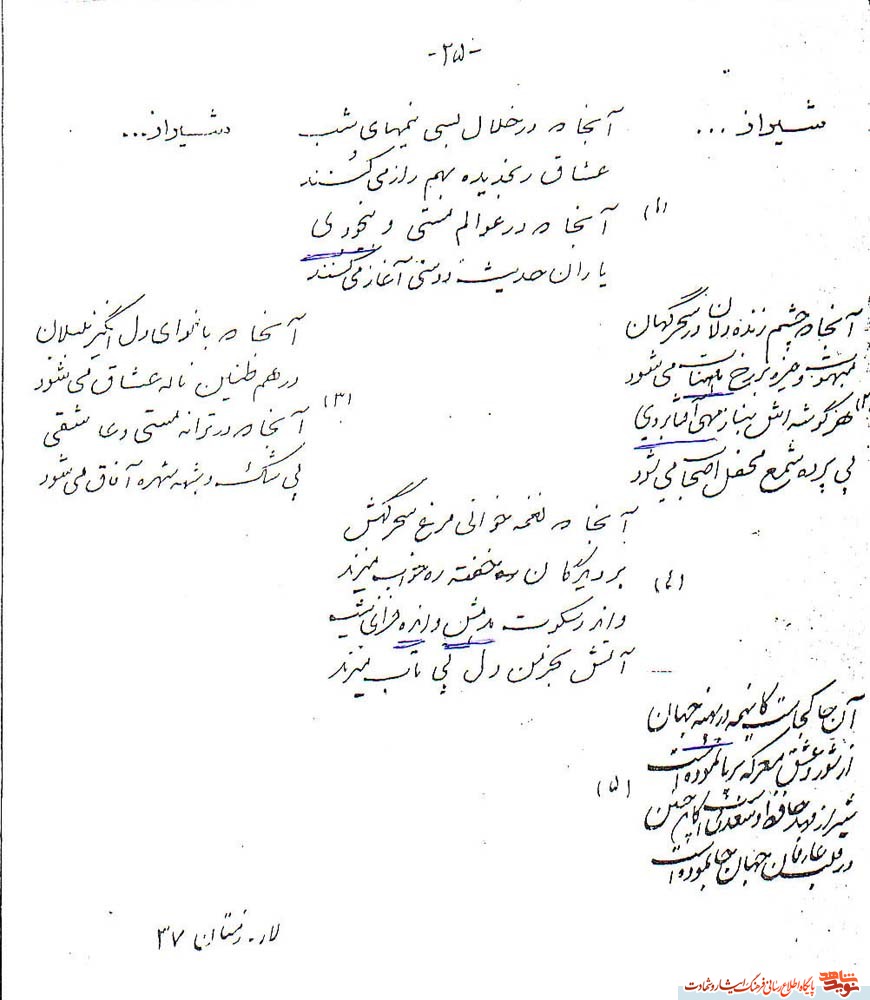 -۲۵-
شیراز ...
شیراز ...
آنجا که در خلال بسی نیمهای شب
عشاق رنجدیده بهم راز می کنند
(۱)
آنجا که در عوالم مستی و بیخودی
یاران حدیث دوستی آغاز می کنند
آنجا که چشم زنده دلان در سحرگهان
مبهوت و خیره بر رخ مهتاب می شود
(۲)
هر گوشه اش بناز مهی آفتابروی
بی پرده شمع محفل اصحاب می شود
آنجا که با نوای دل انگیز بلبلان
درهم طنین ناله عشاق می شود
(۳)
آنجا که در ترانه مستی و عاشقی
بی شک و شبهه شهره آفاق می شود
آنجا که نغمه خوانی مرغ سحرگهش
بر دیدگان خفته ره خواب میزند
(۴)
واندر سکوت و فزای شب
آتش بخرمن دل بی تاب میزند
آن جا کجاست کاینهمه در پهنه جهان
از شور و عشق معرکه برپا نموده است
(۵)
شیراز مهد حافظ و سعدی است کاین چنین
در قلب عارفان جهان جا نموده است
لار - زمستان ۳۷
نوید شاهد
پایگاه اطلاع رسانی فرهنگ ایثار و شهادت